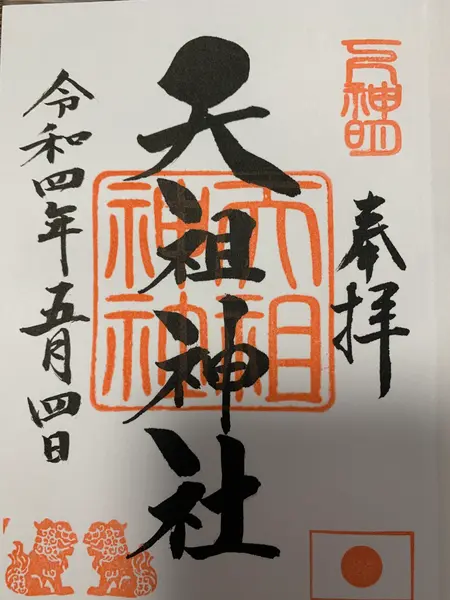 奉拝
天祖神社
天祖
神社
令和四年五月四日